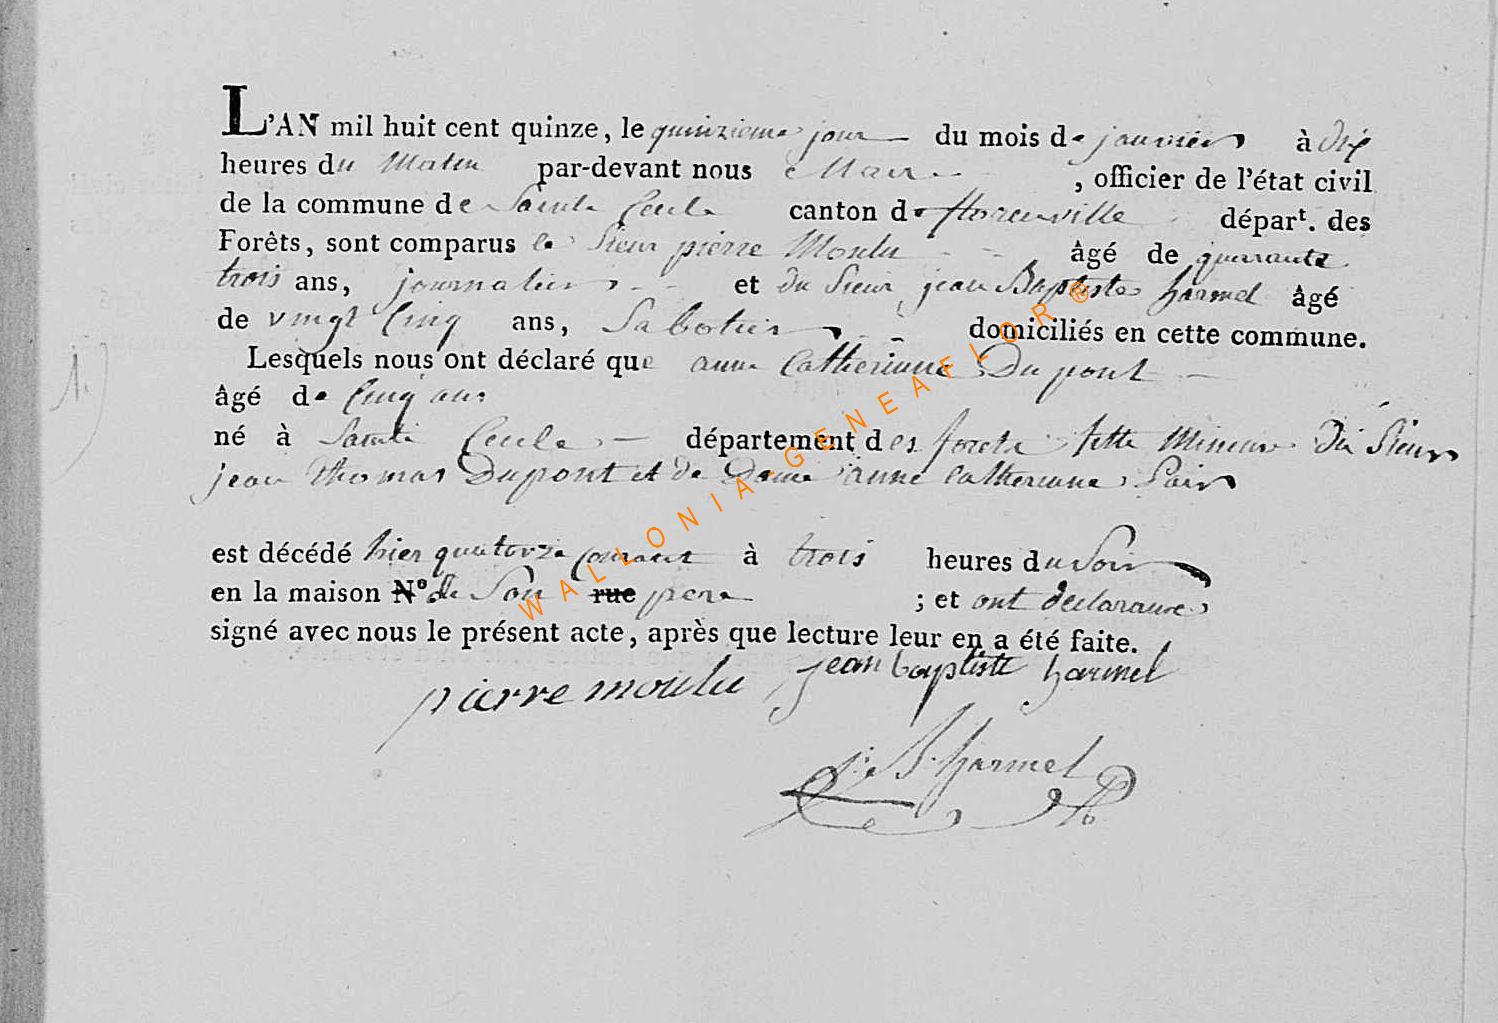 L'AN mil huit cent quinze, le quinzieme jour du mois de janvier à dix
heures du Matin par-devant nous Maire, officier de l'état civil
de la commune de Sainte Cecile canton de florenville départ. des
Forêts, sont comparus le Sieur pierre Moulu âgé de quarante
trois ans, journalier et du Sieur jean Baptiste harmel âgé
de vingt Cinq ans, Sabotier domiciliés en cette commune.
Lesquels nous ont déclaré que anne Catherinne Dupont
1.)
âgé de Cinq ans
né à Sainte Cecile département des forets fille Mineure du Sieur
jean thomas Dupont et de Dame anne Catherinne
est décédé hier quatorze courant à trois heures du Soir
en la maison N° de Son rue pere ; et ont declarans
signé avec nous le présent acte, après que lecture leur en a été faite.
pierre moulu jean baptiste harmel
harmel
WALLONIA-GENEAFLOR®